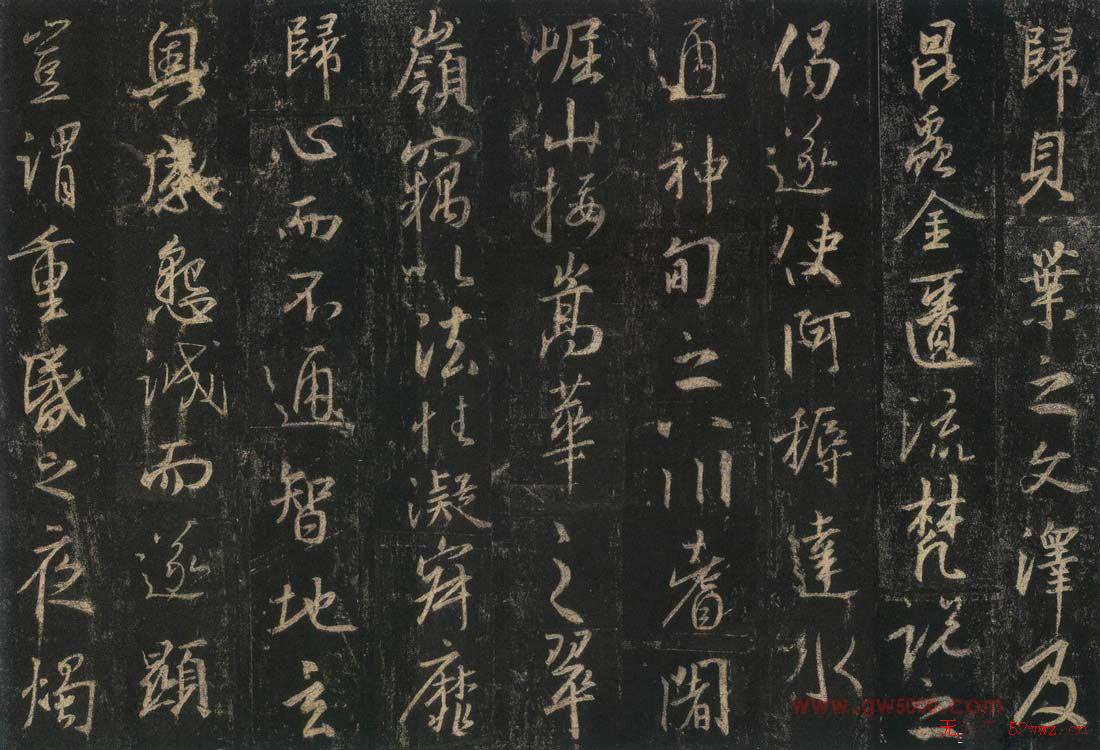 歸貝葉之文澤及
昆蟲金匱流梵說之
偈遂使阿耨達水
通神甸之八川耆闍
崛山接嵩華之翠
嶺竊以法性凝寂靡
歸心而不通智地玄
奧感懇誠而遂顯
豈謂重昏之夜燭
www.gw5000.com